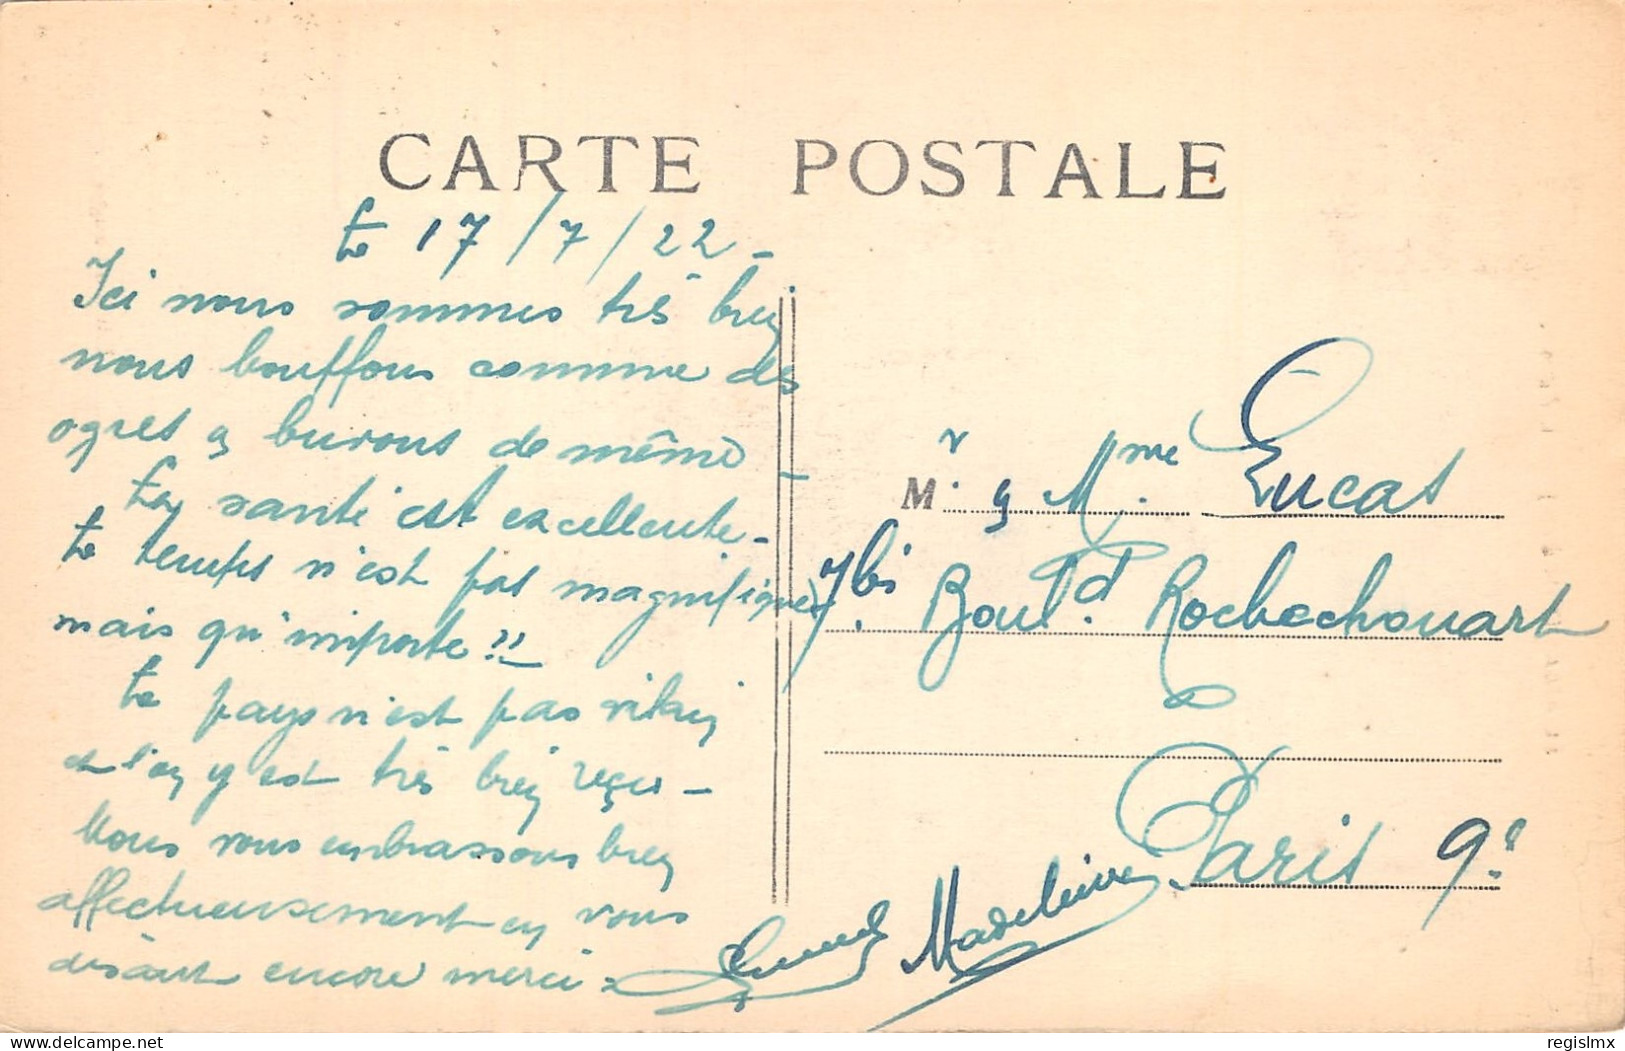 CARTE POSTALE
Le 17/7/22 -
Ici nous sommes très bien
nous bouffons comme des
ogres & buvons de même -
La santé est excellente -
Le temps n'est pas magnifique
mais qu'importe !!
Le pays n'est pas vilain
et l'on y est très bien reçus -
Nous vous embrassons bien
affectueusement en vous
disant encore merci -
Madeleine
Mr. & Mme. Lucas
7bis. Boul.d Rochechouart
Paris 9e
regislmx
delcampe.net